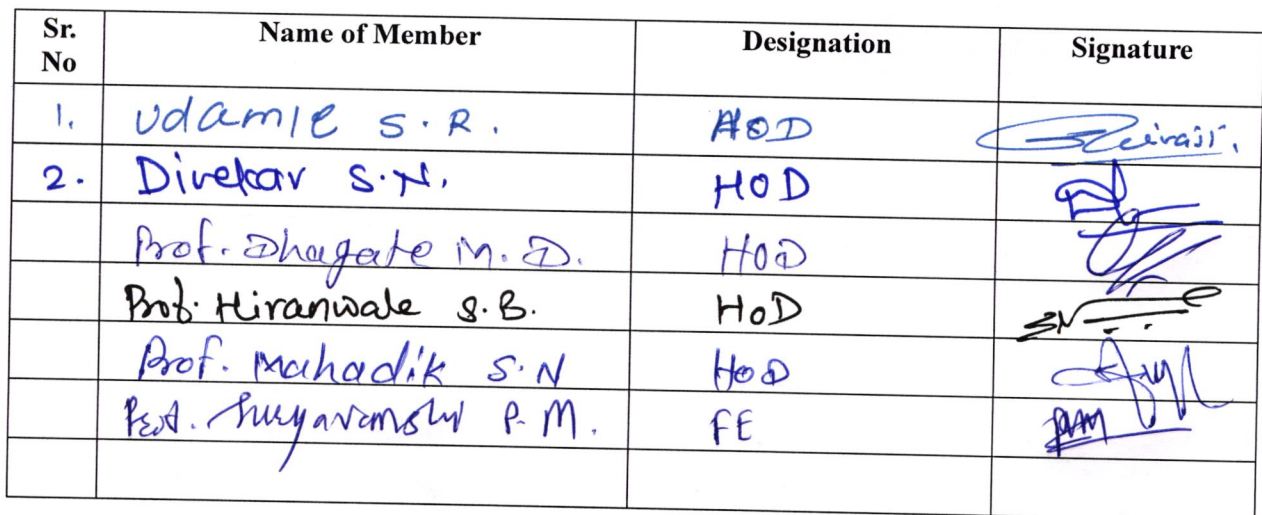 Sr. No Name of Member Designation Signature
1. Udamle S.R. HOD
2. Divekar S.N. HOD
Prof. Dhagate M.D. HOD
Prof. Hiranwale S.B. HoD
Prof. Mahadik S.N HoD
Prof. Suryavanshi P.M. FE PM